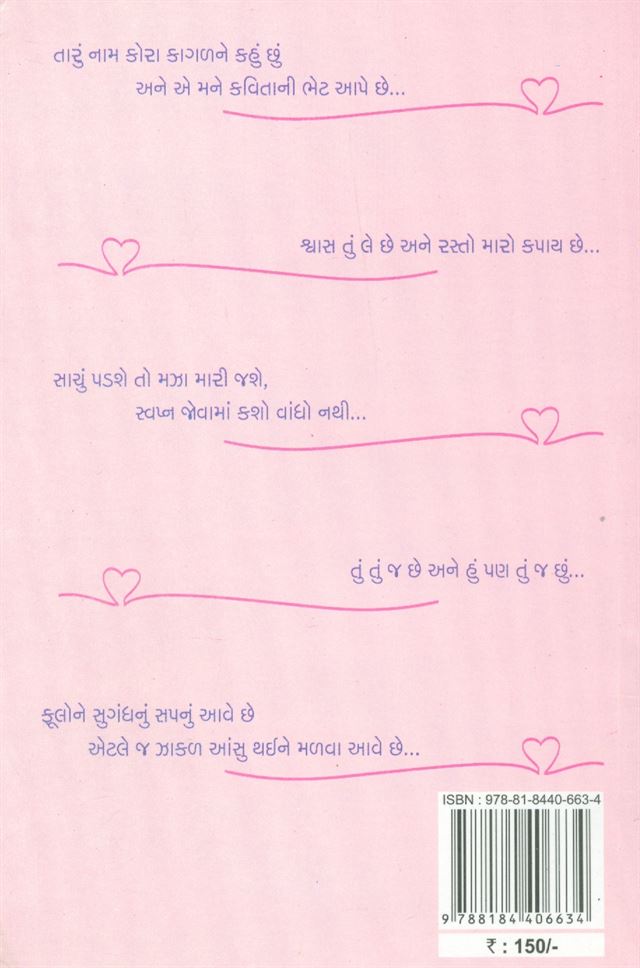 તારું નામ કોરા કાગળને કહું છું
અને એ મને કવિતાની ભેટ આપે છે...
શ્વાસ તું લે છે અને રસ્તો મારો કપાય છે...
સાચું પડશે તો મઝા મારી જશે,
સ્વપ્ન જોવામાં કશો વાંધો નથી...
તું તું જ છે અને હું પણ તું જ છું...
ફૂલોને સુગંધનું સપનું આવે છે
એટલે જ ઝાકળ આંસુ થઈને મળવા આવે છે...
ISBN : 978-81-8440-663-4
9 788184 406634
₹ : 150/-